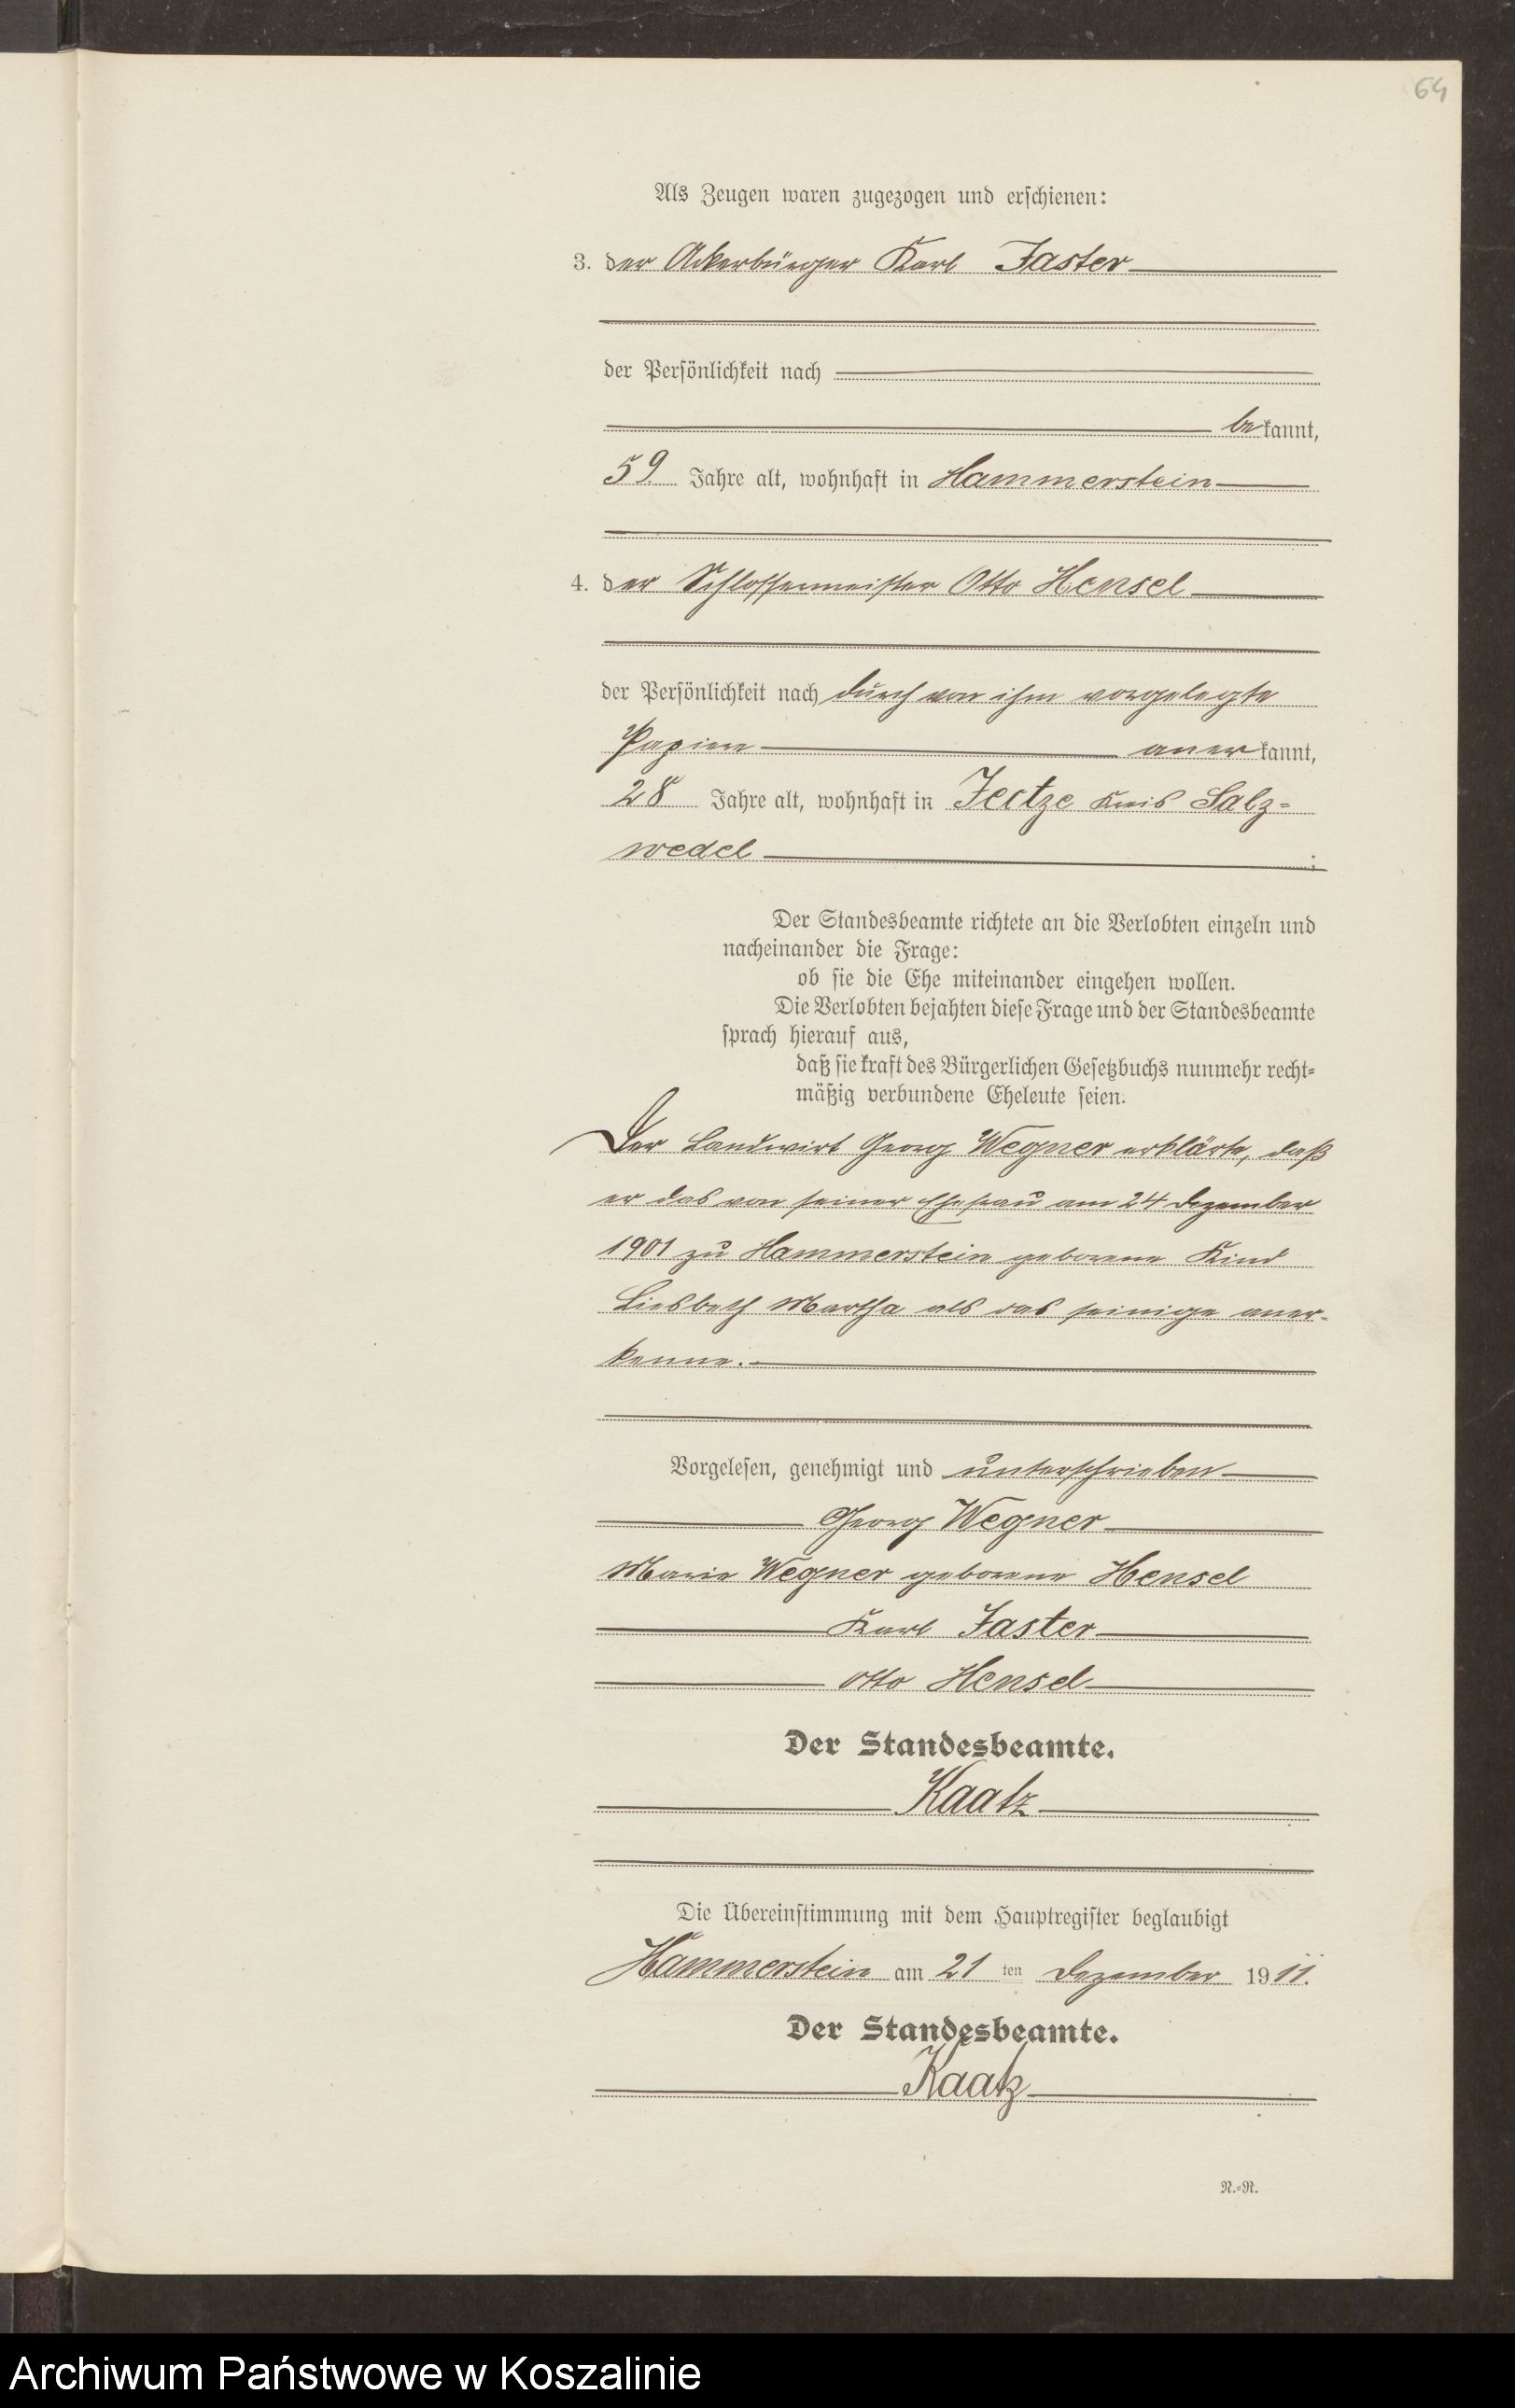 64
Als Zeugen waren zugezogen und erschienen:
3. der Ackerbürger Karl Jaster
der Persönlichkeit nach
bekannt,
59 Jahre alt, wohnhaft in Hammerstein
4. der Schlossermeister Otto Hensel
der Persönlichkeit nach durch von ihm vorgelegte
Papiere anerkannt,
28 Jahre alt, wohnhaft in Jeetze Kreis Salz=
wedel ;
Der Standesbeamte richtete an die Verlobten einzeln und
nacheinander die Frage:
ob sie die Ehe miteinander eingehen wollen.
Die Verlobten bejahten diese Frage und der Standesbeamte
sprach hierauf aus,
daß sie kraft des Bürgerlichen Gesetzbuchs nunmehr recht=
mäßig verbundene Eheleute seien.
Der Landwirt Georg Wegner erklärte, daß
er das von seiner Ehefrau am 24 Dezember
1901 zu Hammerstein geborene Kind
Liesbeth Martha als das seinige aner-
kenne.
Vorgelesen, genehmigt und unterschrieben
Georg Wegner
Marie Wegner geborene Hensel
Karl Jaster
Otto Hensel
Der Standesbeamte.
Kaatz
Die Übereinstimmung mit dem Hauptregister beglaubigt
Hammerstein am 21 ten Dezember 1911.
Der Standesbeamte.
Kaatz
N.=R.
Archiwum Państwowe w Koszalinie